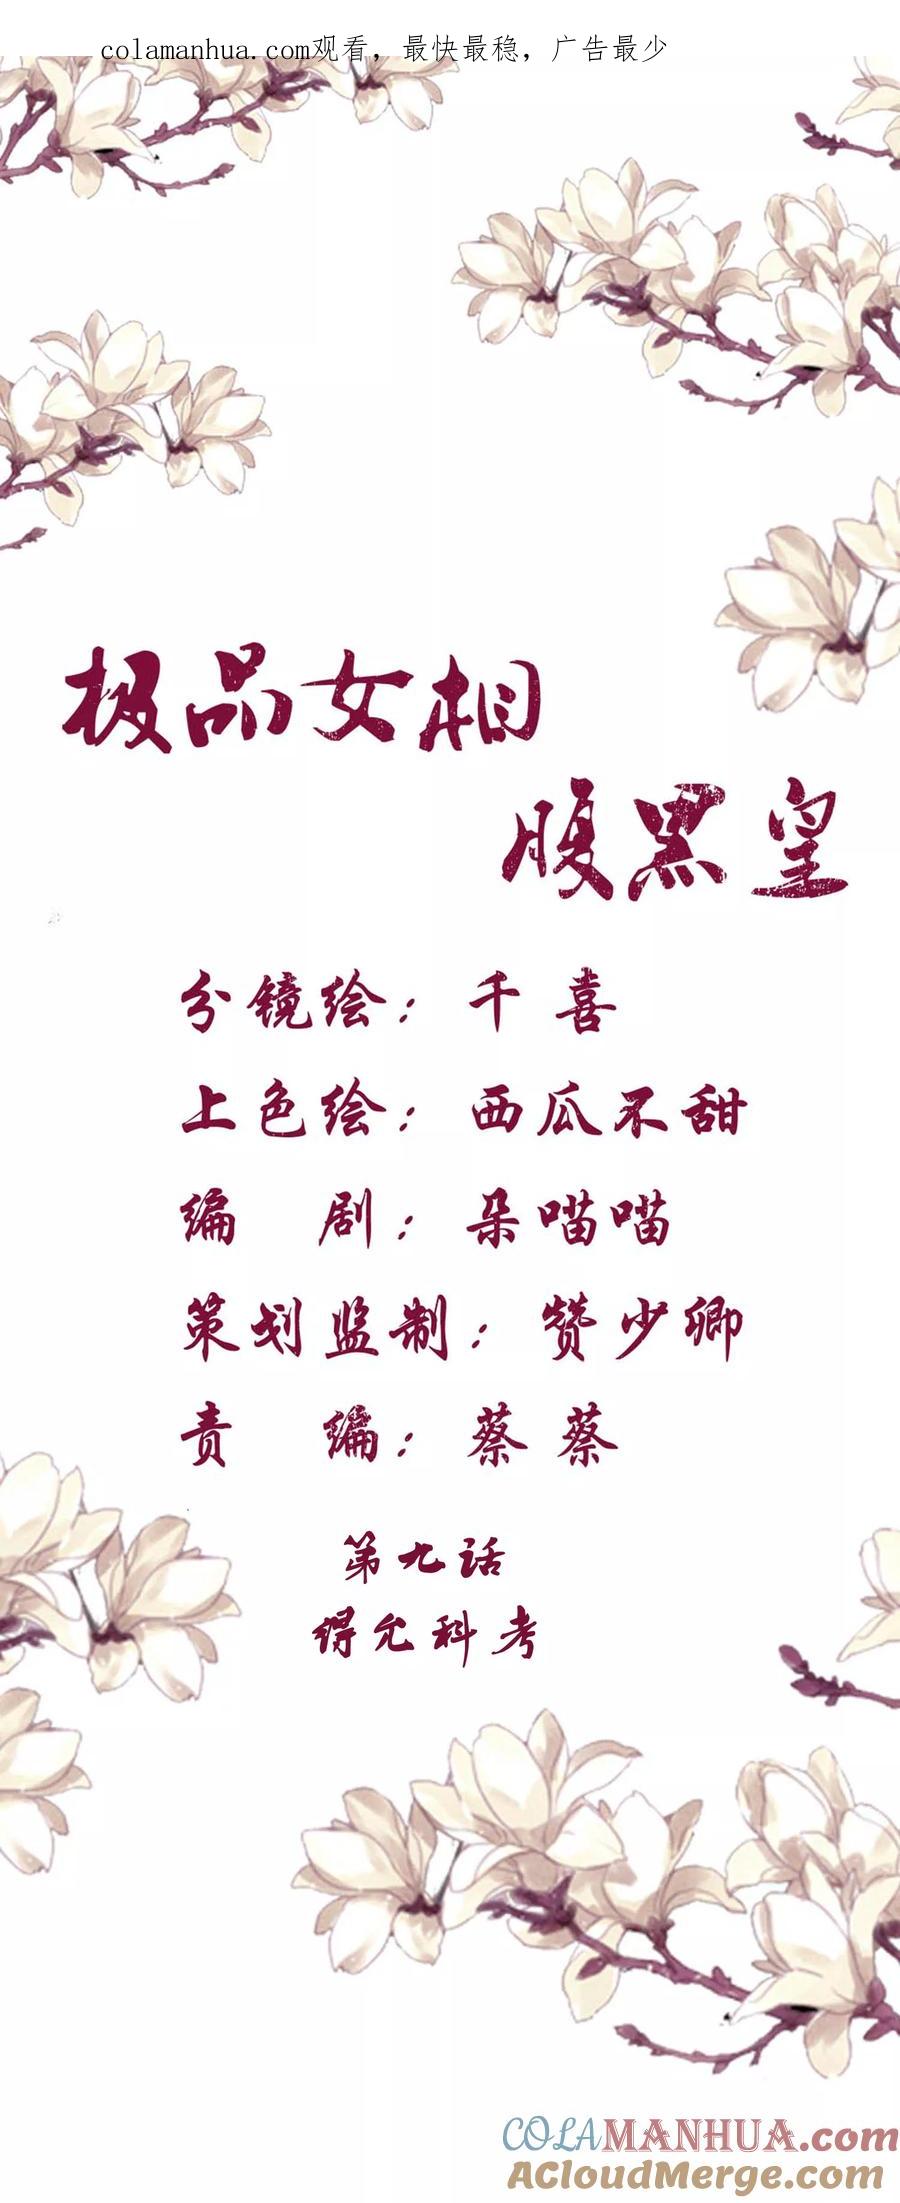 colamanhua.com观看，最快最稳，广告最少
极品女相
腹黑皇
分镜绘：千喜
上色绘：西瓜不甜
编剧：朵喵喵
策划监制：赞少卿
责编：蔡蔡
第九话
得允科考
COLAMANHUA.com
ACloudMerge.com